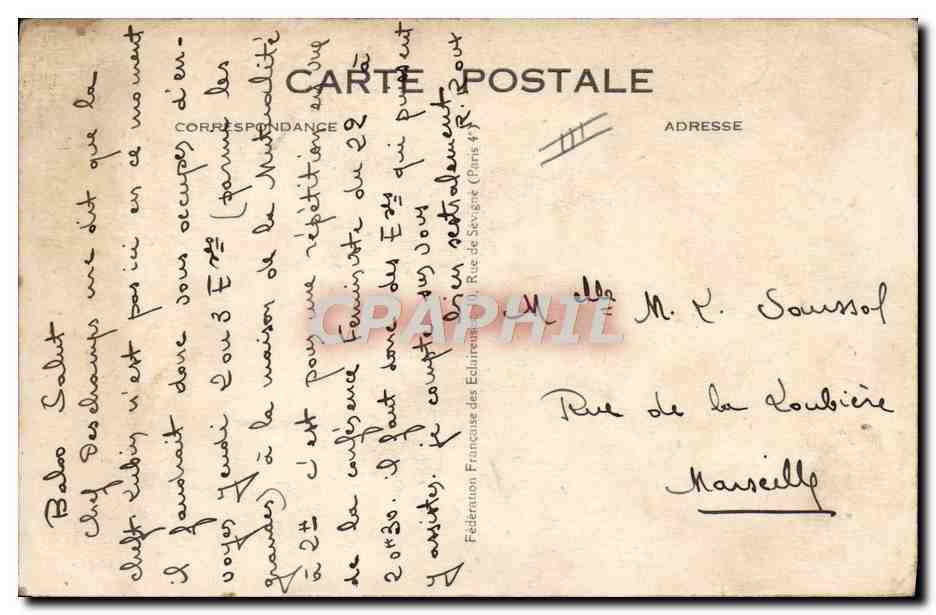 CARTE POSTALE
CORRESPONDANCE
ADRESSE
Baloo Salut
Chef Deschamps me dit que la
cheft. Lubin n'est pas ici en ce moment
il faudrait donc vous occuper d'en-
voyer Jeudi 2 ou 3 Eses (parmi les
grandes) à la maison de la Mutualité
à 2H c'est pour une répétition en vue
de la conférence Féministe du 22 à
20H30. il faut donc des Eses qui puissent
y assister. je compte sur vous
bien sestralement
R. Rout
Fédération Française des Eclaireuses, 10, Rue de Sévigné (Paris 4e)
Melle M. L. Soussol
Rue de la Loubière
Marseille
CPARPHIL